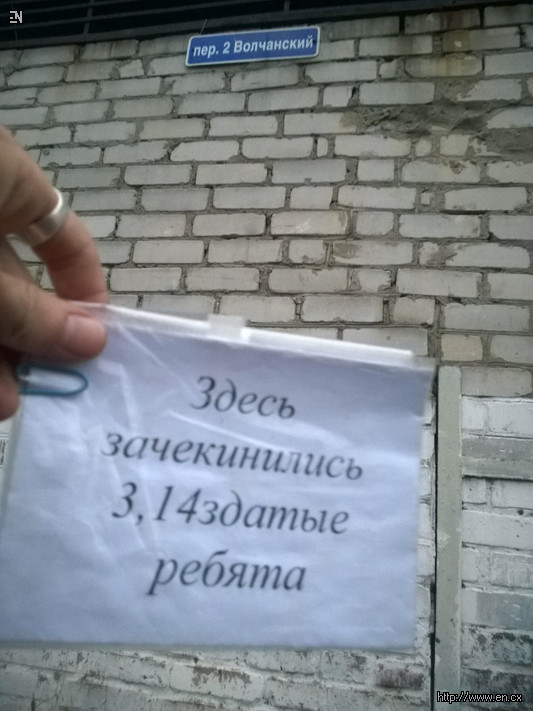 EN
пер. 2 Волчанский
Здесь
зачекинились
3,14здатые
ребята
http://www.en.cx